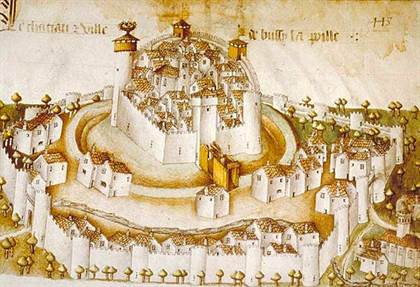 Le chateau & ville de bussy la ville
443